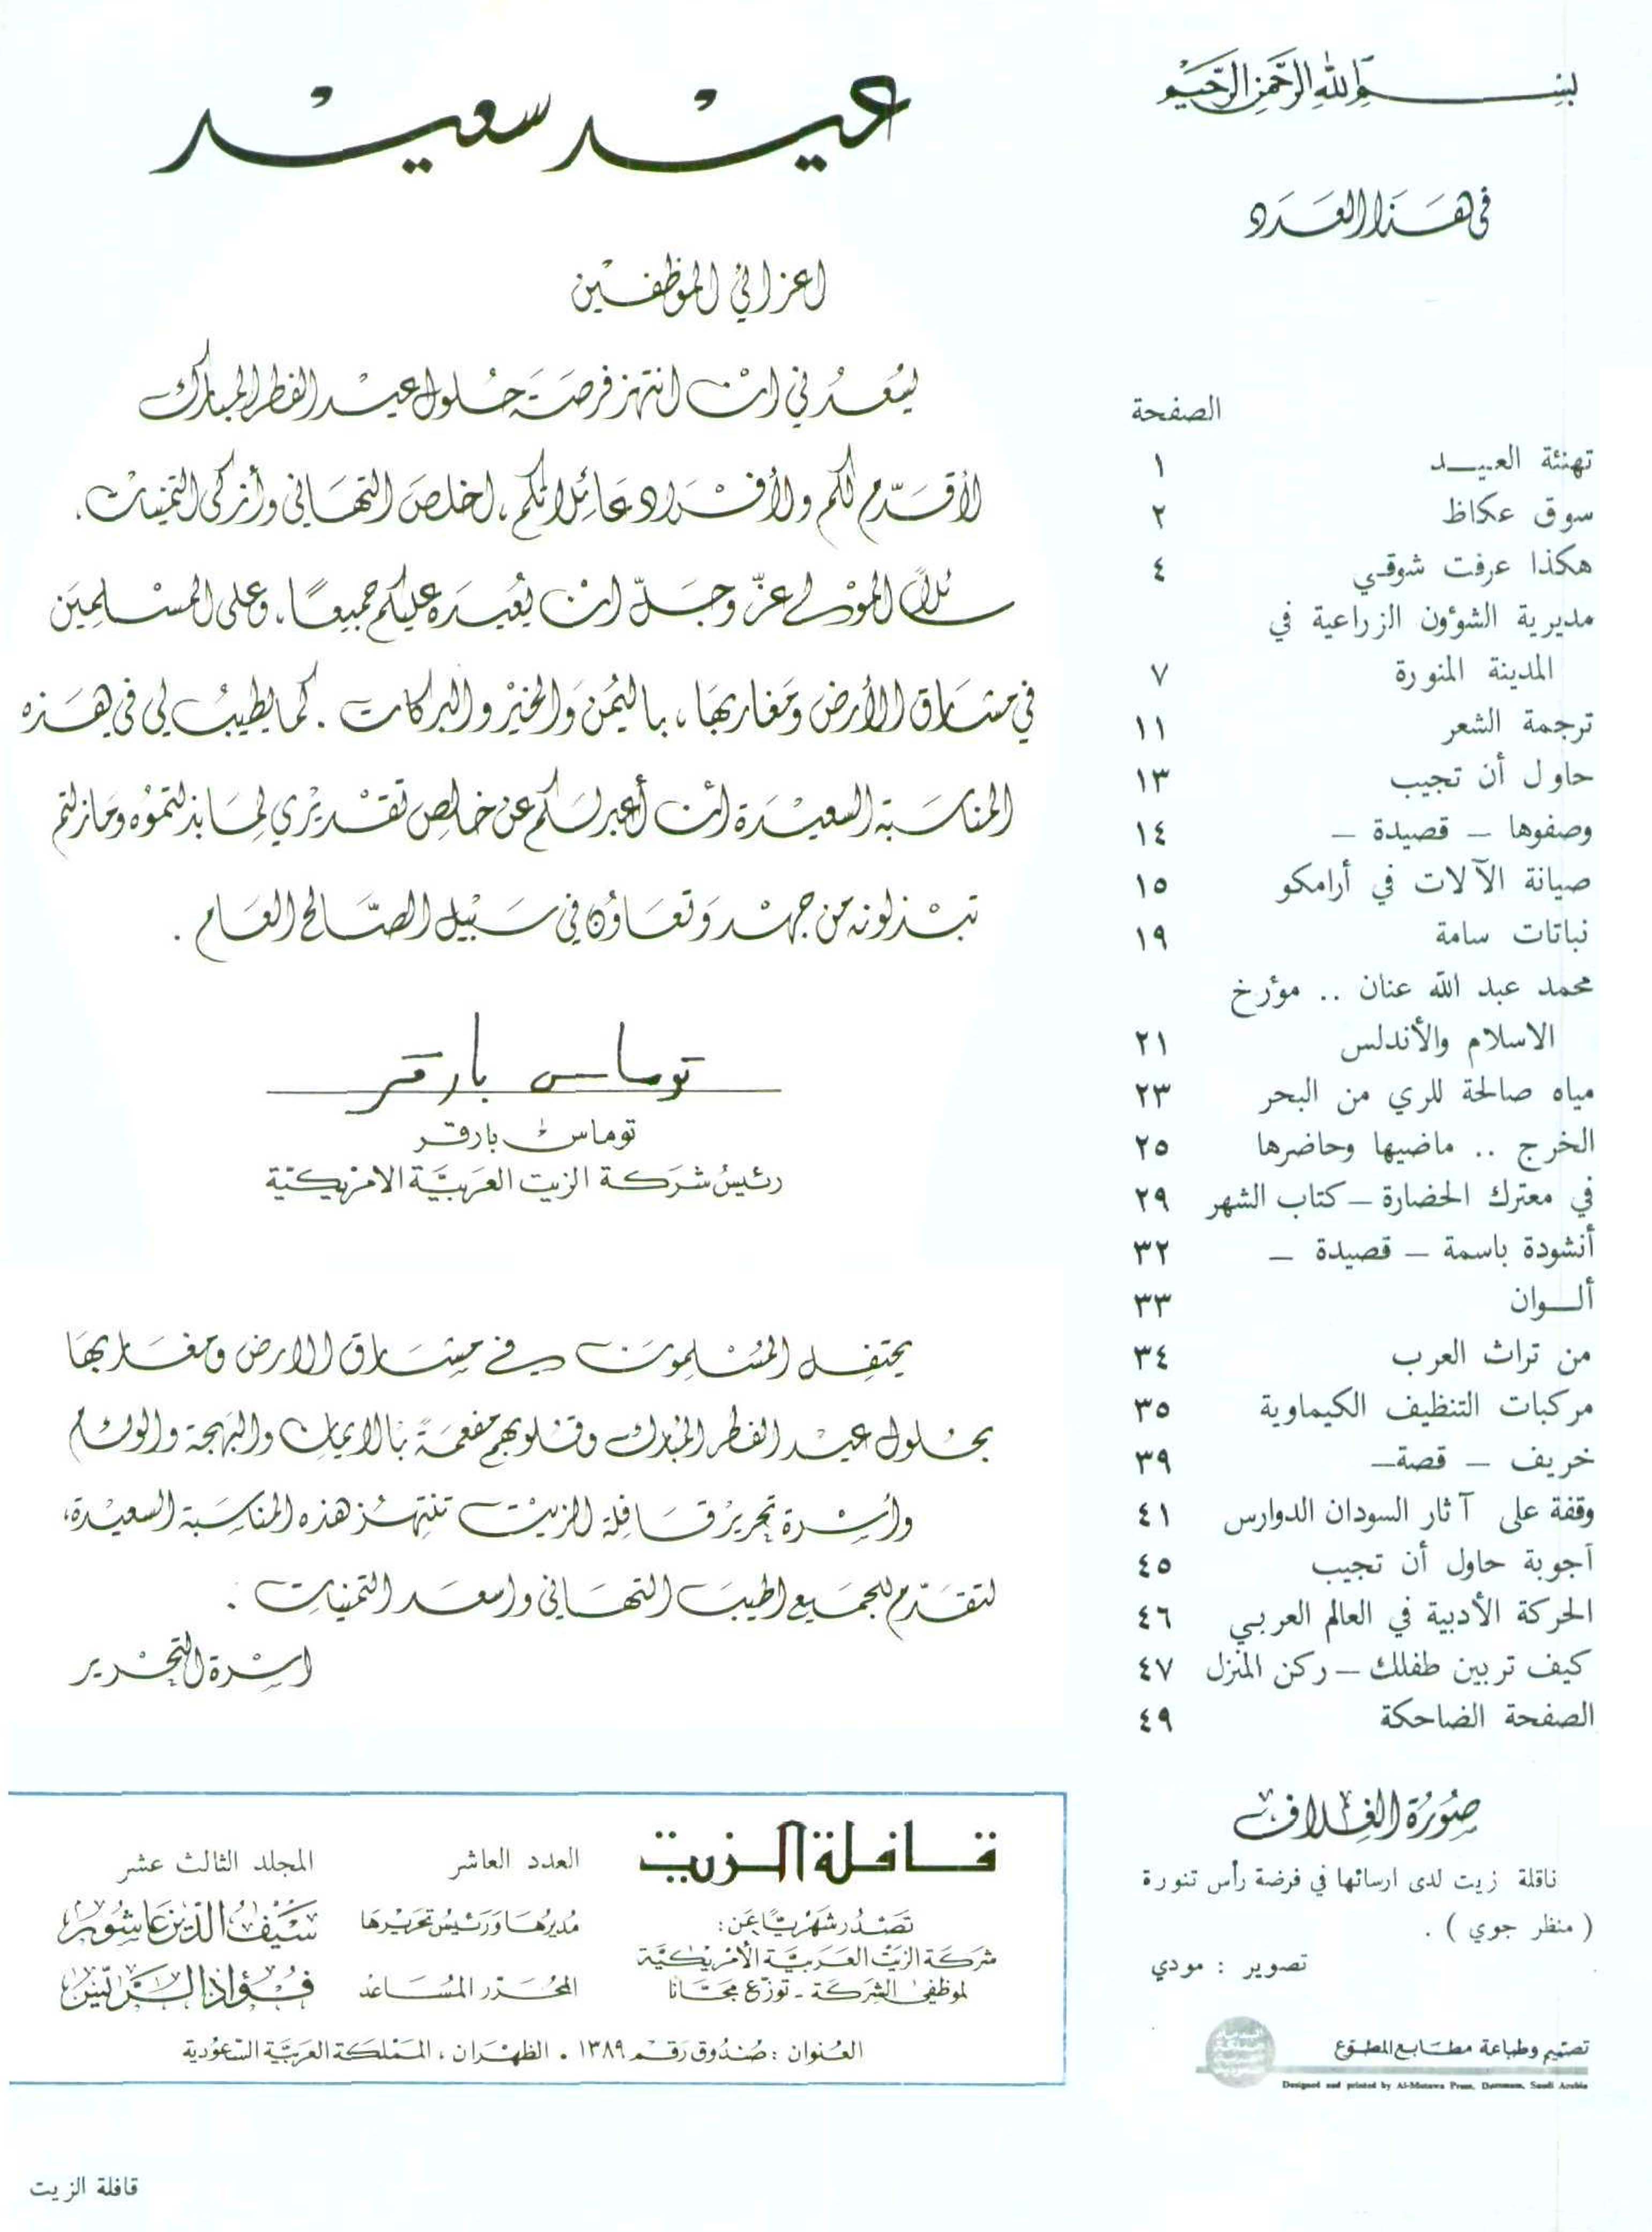 بسم الله الرحمن الرحيم
في هذا العدد
الصفحة
تهنئة العيـــد ١
سوق عكاظ ٢
هكذا عرفت شوقي ٤
مديرية الشؤون الزراعية في
المدينة المنورة ٧
ترجمة الشعر ١١
حاول أن تجيب ١٣
وصفوها – قصيدة – ١٤
صيانة الآلات في أرامكو ١٥
نباتات سامة ١٩
محمد عبد الله عنان .. مؤرخ
الاسلام والأندلس ٢١
مياه صالحة للري من البحر ٢٣
الخرج .. ماضيها وحاضرها ٢٥
في معترك الحضارة – كتاب الشهر ٢٩
أنشودة باسمة – قصيدة – ٣٢
ألــوان ٣٣
من تراث العرب ٣٤
مركبات التنظيف الكيماوية ٣٥
خريف – قصة – ٣٩
وقفة على آثار السودان الدوارس ٤١
آجوبة حاول أن تجيب ٤٥
الحركة الأدبية في العالم العربي ٤٦
كيف تربين طفلك – ركن المنزل ٤٧
الصفحة الضاحكة ٤٩
صورة الغلاف
ناقلة زيت لدى ارسائها في فرضة رأس تنورة
( منظر جوي ) .
تصوير : مودي
تصميم وطباعة مطابع المطوع
Designed and printed by Al-Mutawa Press, Dammam, Saudi Arabia
عيد سعيد
اعزائي الموظفين
يسعدني ان انتهز فرصة حلول عيد الفطر المبارك
لأقدم لكم ولأفراد عائلاتكم، اخلص التهاني وأزكى التمنيات.
سائلا المولى عزّ وجلّ ان يعيده عليكم جميعًا، وعلى المسلمين
في مشارق الأرض ومغاربها، باليمن والخير والبركات. كما يطيب لي في هذه
المناسبة السعيدة ان أعبر لكم عن خالص تقديري لما بذلتموه ومازلتم
تبذلونه من جهد وتعاون في سبيل الصالح العام.
توماس بارقر
توماس بارقر
رئيس شركة الزيت العربية الامريكية
يحتفل المسلمون في مشارق الارض ومغاربها
بحلول عيد الفطر المبارك وقلوبهم مفعمة بالايمان والبهجة والوئام
وأسرة تحرير قافلة الزيت تنتهز هذه المناسبة السعيدة،
لتقدم للجميع اطيب التهاني واسعد التمنيات.
اسرة التحرير
قافلة الزيت
العدد العاشر
المجلد الثالث عشر
تصدر شهريًا عن:
شركة الزيت العربية الأمريكية
لموظفي الشركة - توزع مجانا
مديرها ورئيس تحريرها سيف الدين عاشور
المحرر المساعد فؤاد الريس
العنوان : صندوق رقم ١٣٨٩ . الظهران ، المملكة العربية السعودية
قافلة الزيت